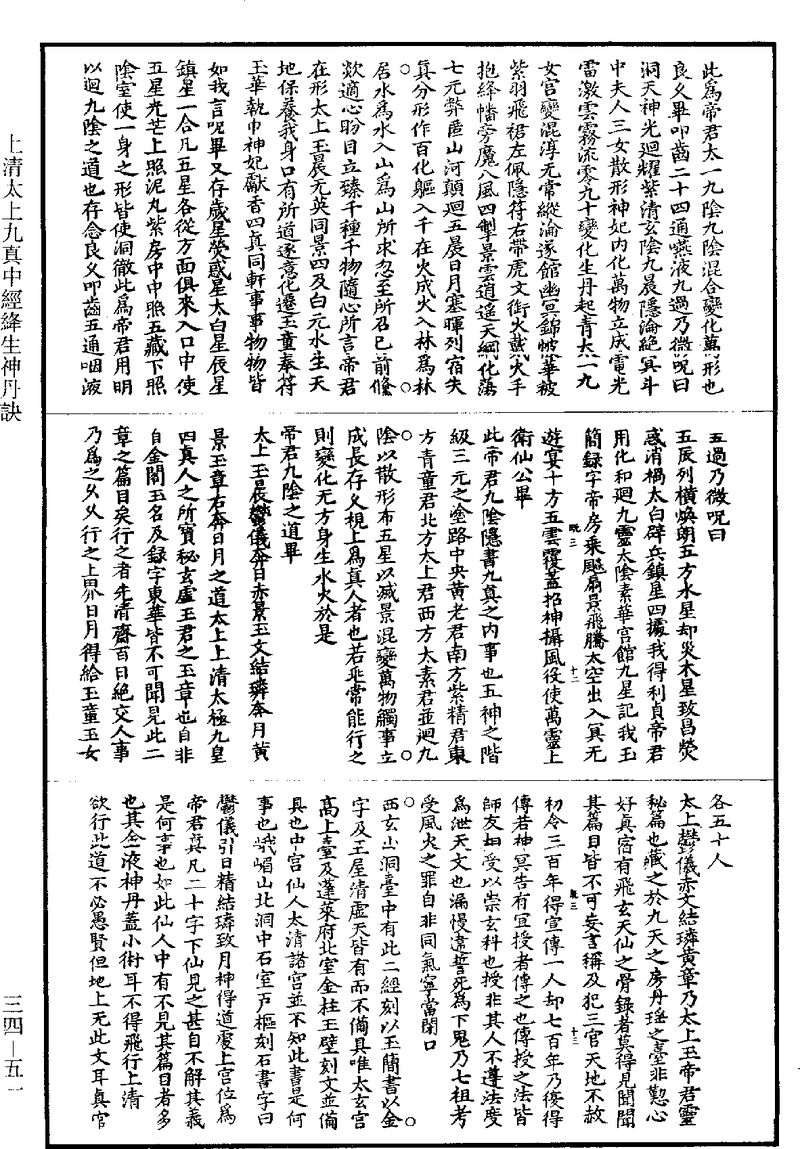 上清太上九真中經絳生神丹訣
三四—五一
此爲帝君太一九陰九陰混合變化萬形也
良久畢叩齒二十四通嚥液九過乃微呪曰
洞天神光迴耀紫清玄陰九晨隱淪絕冥斗
中夫人三女散形神妃內化萬物立成電光
雷激雲霧流零九十變化生丹起青太一九
女官變混淳无常縱淪逐館幽冥錦帔華被
紫羽飛裙左佩隱符右帶虎文銜火戴火手
抱絳幡旁魔八風四掣景雲逍遙天綱化蕩
七元弊匿山河顛迴五晨日月塞暉列宿失
真分形作百化軀入千在火成火入林爲林
居水爲水入山爲山所求忽至所召已前儵
欻適心盼目立臻千種千物隨心所言帝君
在形太上玉晨无英同景四及白元水生天
地保養我身口有所道逐意化遷玉童奉符
玉華執巾神妃獻香四真同軒事事物物皆
如我言呪畢又存歲星熒惑星太白星辰星
鎮星一合凡五星各從方面俱來入口中使
五星光芒上照泥丸紫房中中照五藏下照
陰室使一身之形皆使洞徹此爲帝君用明
以迴九陰之道也存念良久叩齒五通咽液
五過乃微呪曰
五辰列橫煥朗五方水星却災木星致昌熒
惑消禍太白辟兵鎮星四據我得利貞帝君
用化和迴九靈太陰素華宮館九星記我玉
簡錄字帝房乘飈扇景飛騰太空出入冥无
遊宴十方五雲覆蓋招神攝風役使萬靈上
衛仙公畢
此帝君九陰隱書九真之內事也五神之階
級三元之塗路中央黃老君南方紫精君東
方青童君北方太上君西方太素君並迴九
陰以散形布五星以滅景混變萬物觸事立
成長存久視上爲真人者也若乖常能行之
則變化无方身生水火於是
帝君九陰之道畢
太上玉晨鬱儀奔日赤景玉文結璘奔月黃
景玉章右奔日月之道太上上清太極九皇
四真人之所寶秘玄虛王君之玉章也自非
自金閣玉名及錄字東華皆不可聞見此二
章之篇目矣行之者先清齋百日絕交人事
乃爲之久久行之上昇日月得給玉童玉女
各五十人
太上鬱儀赤文結璘黃章乃太上玉帝君靈
秘篇也藏之於九天之房丹瑤之臺非懃心
好真宿有飛玄天仙之骨錄者莫得見聞聞
其篇目皆不可妄言稱及犯三官天地不赦
初令三百年得宣傳一人却七百年乃復得
傳若神冥告有宜授者傳之也傳授之法皆
師友相受以崇玄科也授非其人不遵法度
爲泄天文也漏慢違誓死爲下鬼乃七祖考
受風火之罪自非同氣寧當閉口
西玄山洞臺中有此二經刻以玉簡書以金
字及王屋清虛天皆有而不備具唯太玄宮
高上臺及蓬萊府北室金柱玉壁刻文並備
具也中宮仙人太清諸宮並不知此書是何
事也峨嵋山北洞中石室戶樞刻石書字曰
鬱儀引日精結璘致月神得道處上宮位爲
帝君真凡二十字下仙見之甚自不解其義
是何事也如此仙人中有不見其篇目者多
也其金液神丹蓋小術耳不得飛行上清
欲行此道不必愚賢但地上无此文耳真官